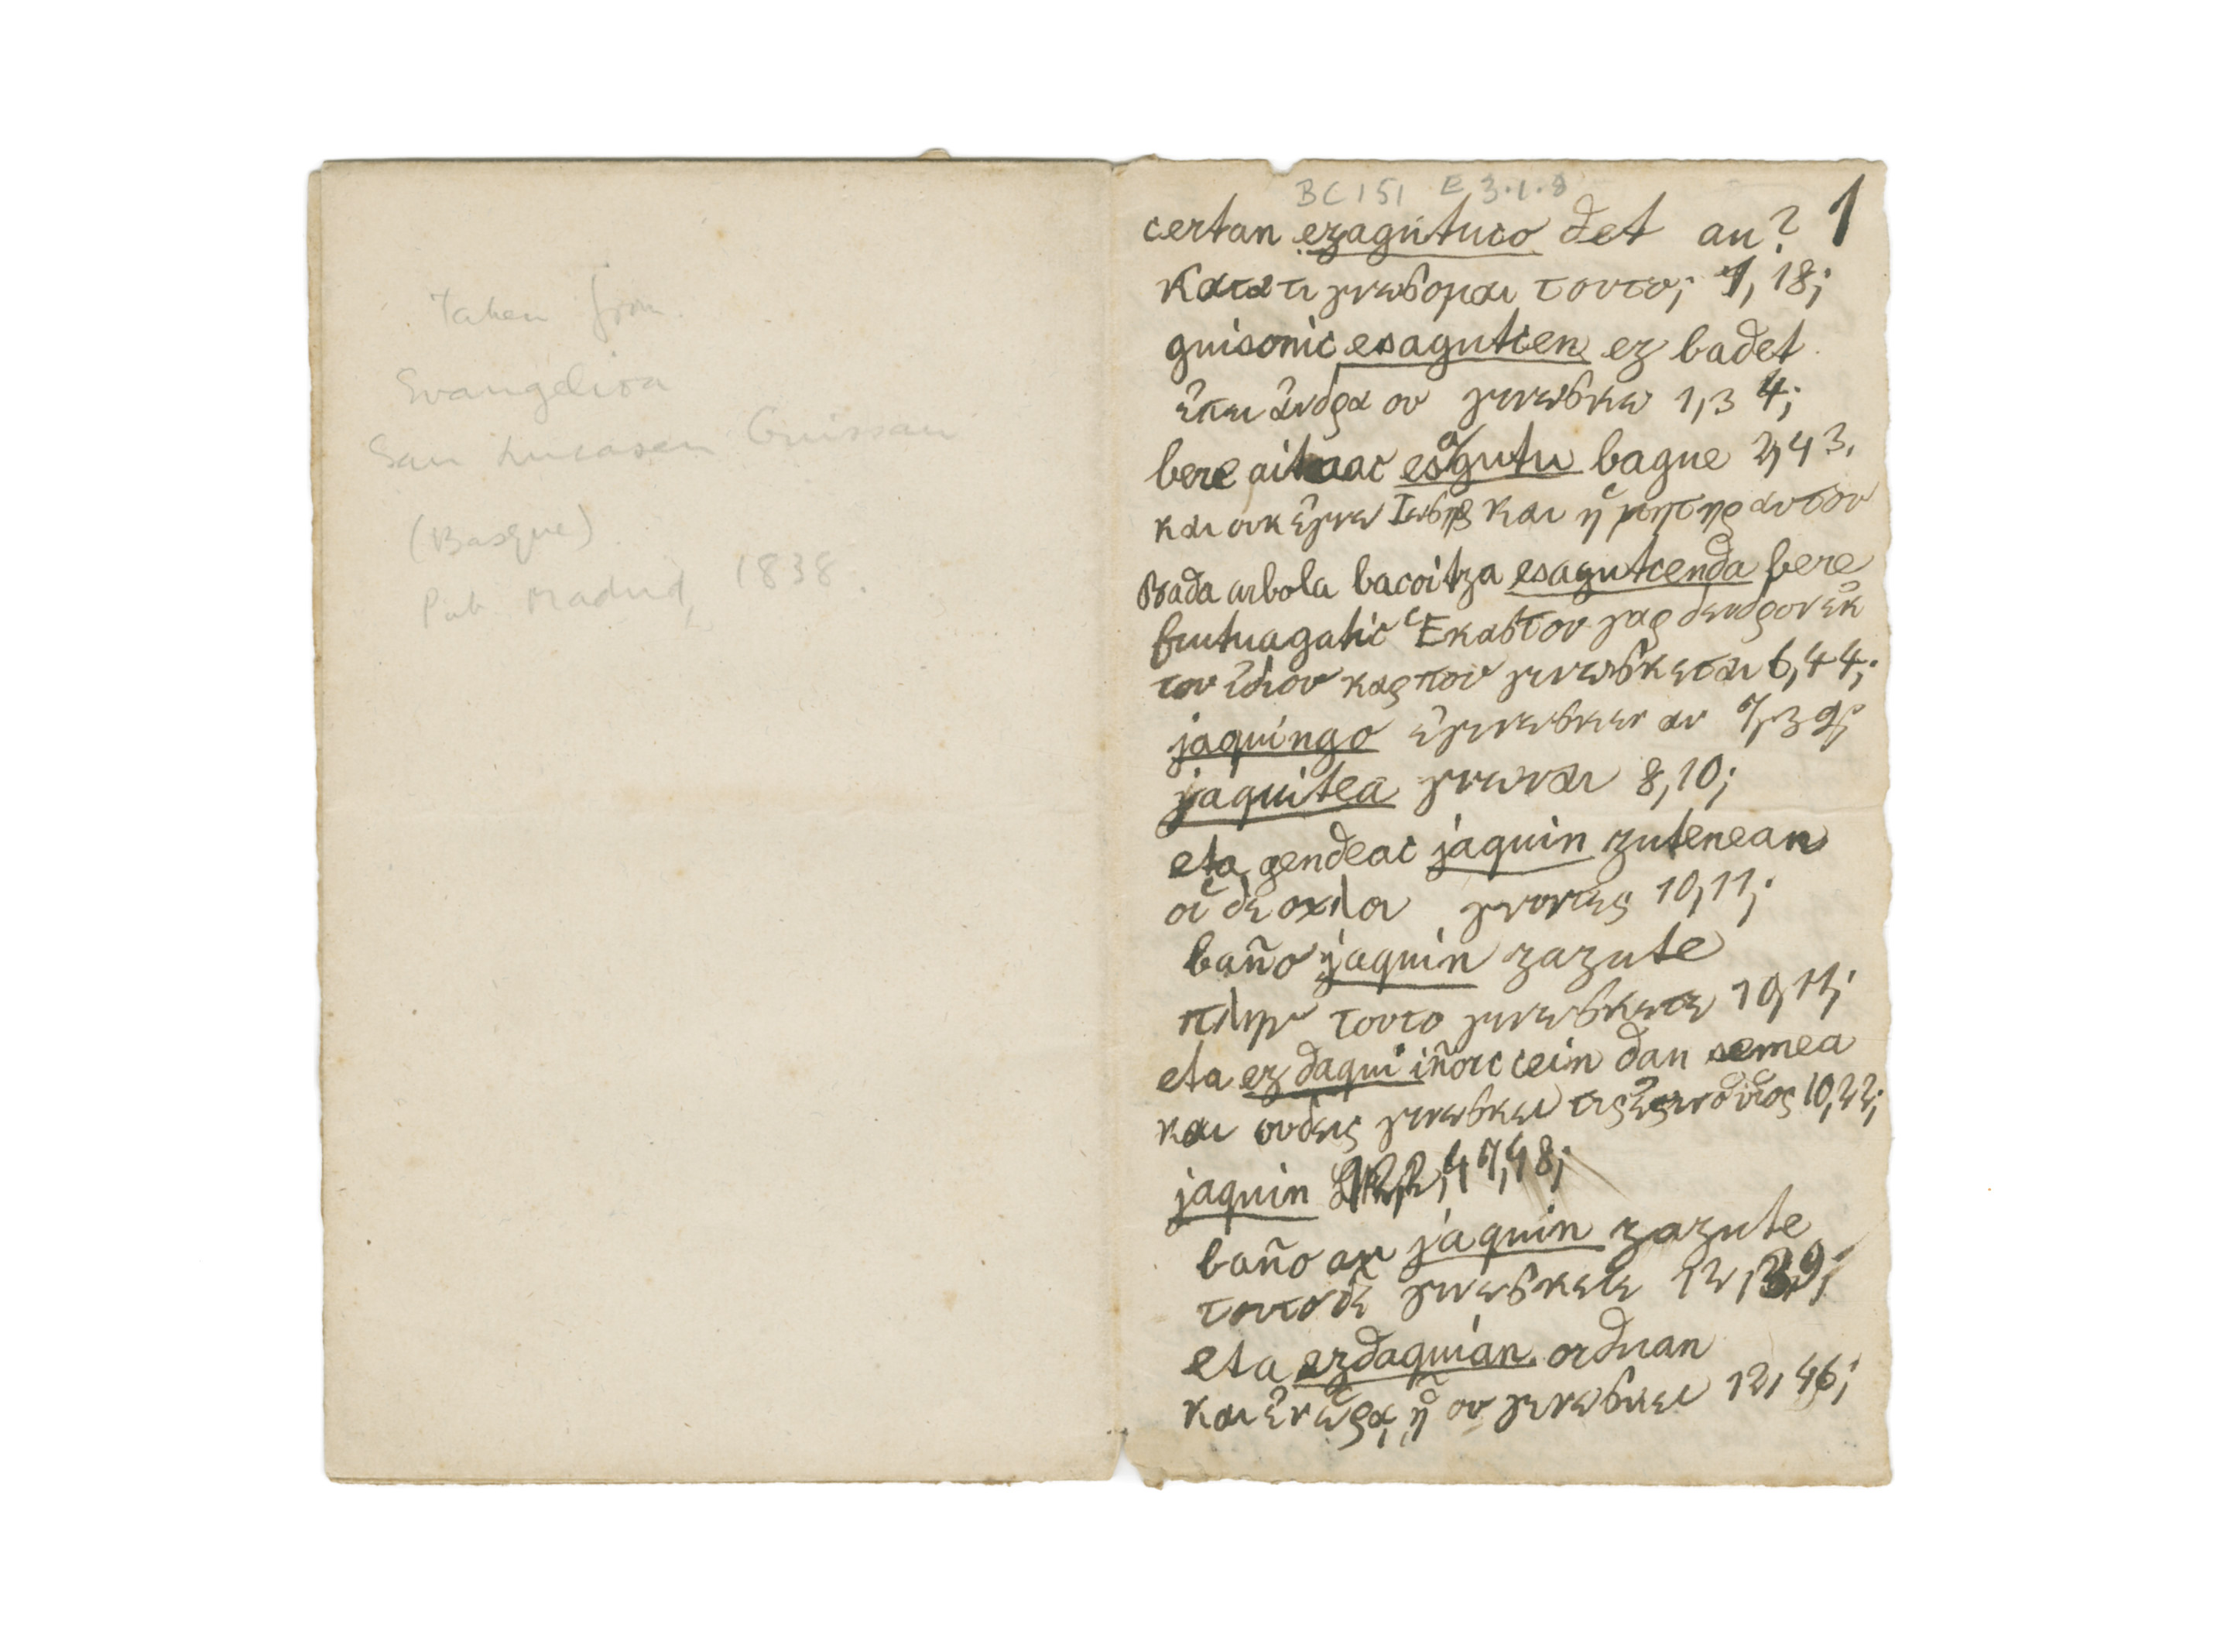 Taken from
Evangelioa
San Lucasen Guissan
(Basque)
Pub. Madrid, 1838.
BC 151 E 3.1.8
certan ezagutuco det au? 1
κατα τι γνωσομαι τουτο; 1, 18;
guisonic esagutcen ez badet
ἐπει ἀνδρα ου γινωσκω 1, 34;
bere aitaac esagutu bague 2, 43.
και ουκ ἐγνω Ιωσηφ και ἡ μητηρ αυτου
Bada arbola bacoitza esagutcenda bere
frutuagatic Ἑκαστον γαρ δενδρον ἐκ
του ἰδιου καρπου γινωσκεται 6, 44;
jaquingo ἐγινωσκεν αν 7, 39;
jaquitea γνωναι 8, 10;
eta gendeac jaquin zutenean
οἱ δε οχλοι γνοντες 10, 11;
baño jaquin zazute
πλην τουτο γινωσκετε 10, 11;
eta ez daqui iñorc cein dan semea
και ουδεις γινωσκει τις ἐστιν ὁ υἱος 10, 22;
jaquin 12, 47, 48;
baño au jaquin zazute
τουτο δε γινωσκετε 12, 39;
eta ezdaquian orduan
και ἐν ὡρα ἡ ου γινωσκει 12, 46;